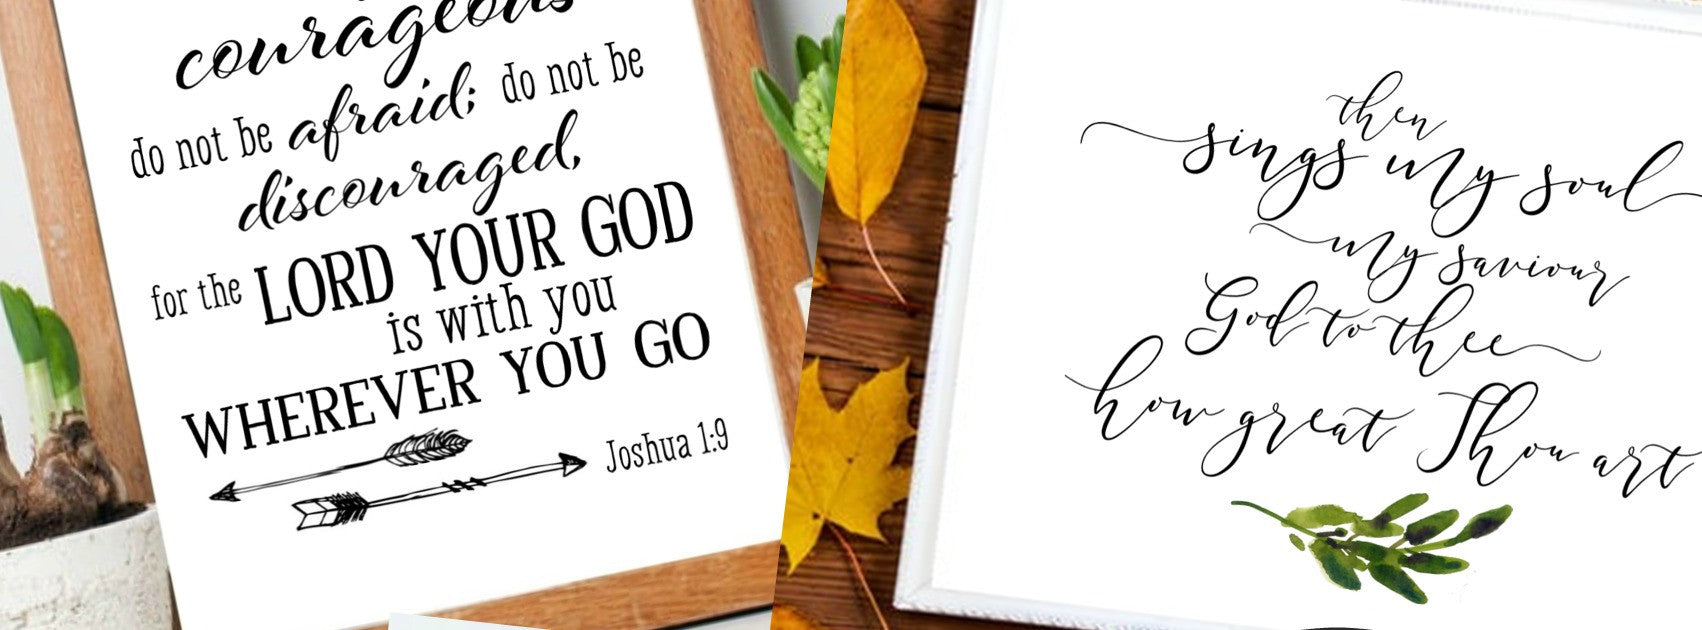 courageous
do not be afraid; do not be
discouraged,
for the LORD YOUR GOD
is with you
WHEREVER YOU GO
Joshua 1:9
then
sings my soul
my saviour
God to thee
how great Thou art